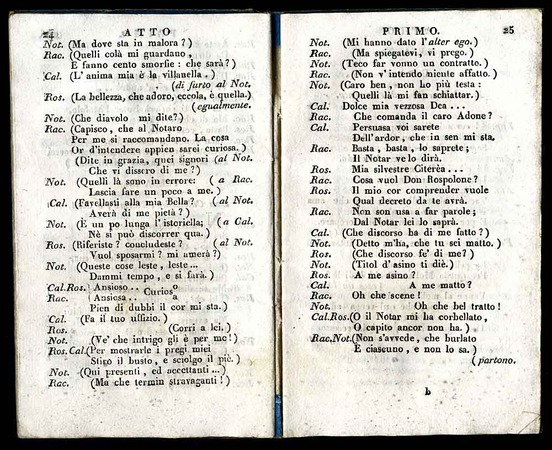 24 ATTO
Not. (Ma dove sta in malora?)
Rac. (Quelli colà mi guardano,
E fanno cento smorfie: che sarà?)
Cal. (L'anima mia è la villanella.)
(di furto al Not.
Ros. (La bellezza, che adoro, eccola, è quella.)
(egualmente.
Not. (Che diavolo mi dite?)
Rac. (Capisco, che al Notaro
Per me si raccomandano. La cosa
Or d'intendere appien sarei curiosa.)
(Dite in grazia, quei signori (al Not.
Che vi dissero di me?)
Not. (Quelli là sono in errore: (a Rac.
Lascia fare un poco a me.)
Cal. (Favellasti alla mia Bella? (al Not.
Averà di me pietà?)
Not. (È un po lunga l'istoriella; (a Cal.
Nè si può discorrer qua.)
Ros. (Riferiste? concludeste? (al Not.
Vuol sposarmi? mi amerà?)
Not. (Queste cose leste, leste...
Dammi tempo, e si farà.)
Cal.Ros. Ansioso.. Curioso
Rac. Ansiosa.. a
Pien di dubbi il cor mi sta.)
Cal. (Fa il tuo uffizio.)
Ros. (Corri a lei.)
Not. (Ve' che intrigo gli è per me!)
Ros.Cal. (Per mostrarle i pregi miei
Stiro il busto, e sciolgo il piè.)
Not. (Qui presenti, ed accettanti...)
Rac. (Ma che termin stravaganti!)
PRIMO. 25
Not. (Mi hanno dato l'alter ego.)
Rac. (Ma spiegatevi, vi prego.)
Not. (Teco far vonno un contratto.)
Rac. (Non v'intendo niente affatto.)
Not. (Caro ben, non ho più testa:
Quelli là mi fan schiattar.)
Cal. Dolce mia vezzosa Dea...
Rac. Che comanda il caro Adone?
Cal. Persuasa voi sarete
Dell'ardor, che in sen mi sta.
Rac. Basta, basta, lo saprete;
Il Notar ve lo dirà.
Ros. Mia silvestre Citerèa...
Rac. Cosa vuol Don Rospolone?
Ros. Il mio cor comprender vuole
Qual decreto da te avrà.
Rac. Non son usa a far parole;
Dal Notar lei lo saprà.
Cal. (Che discorso ha di me fatto?)
Not. (Detto m'ha, che tu sei matto.)
Ros. (Che discorso fe' di me?)
Not. (Titol d'asino ti diè.)
Ros. A me asino?
Cal. A me matto?
Rac. Oh che scene!
Not. Oh che bel tratto!
Cal.Ros. (O il Notar mi ha corbellato,
O capito ancor non ha.)
Rac.Not. (Non s'avvede, che burlato
E ciascuno, e non lo sa.)
(partono.
b